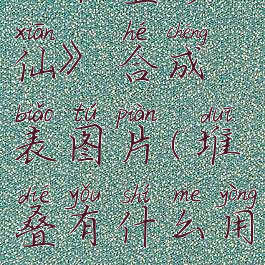 xiān hé chéng
仙》 合成
biǎo tú piàn duī
表图片(堆
dié yǒu shí me yòng
叠有什么用